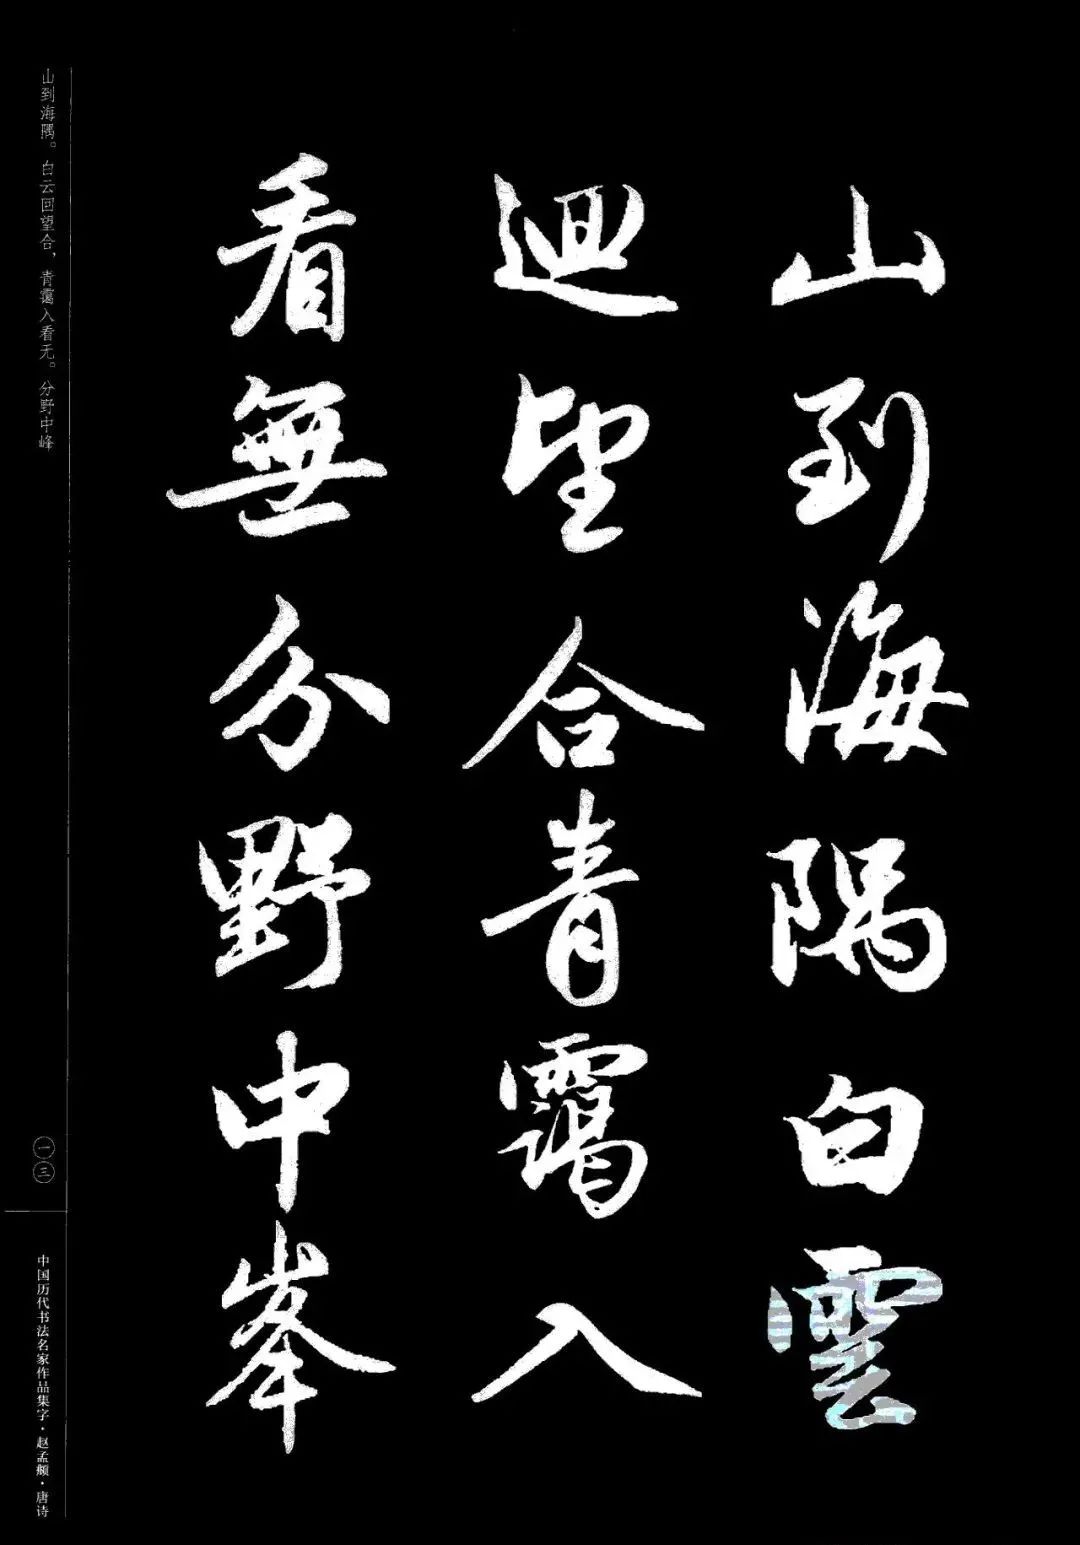 山到海隅白雲
迴望合青靄入
看無分野中峯
山到海隅。白云回望合，青霭入看无。分野中峰
一三
中国历代书法名家作品集字·赵孟頫·唐诗